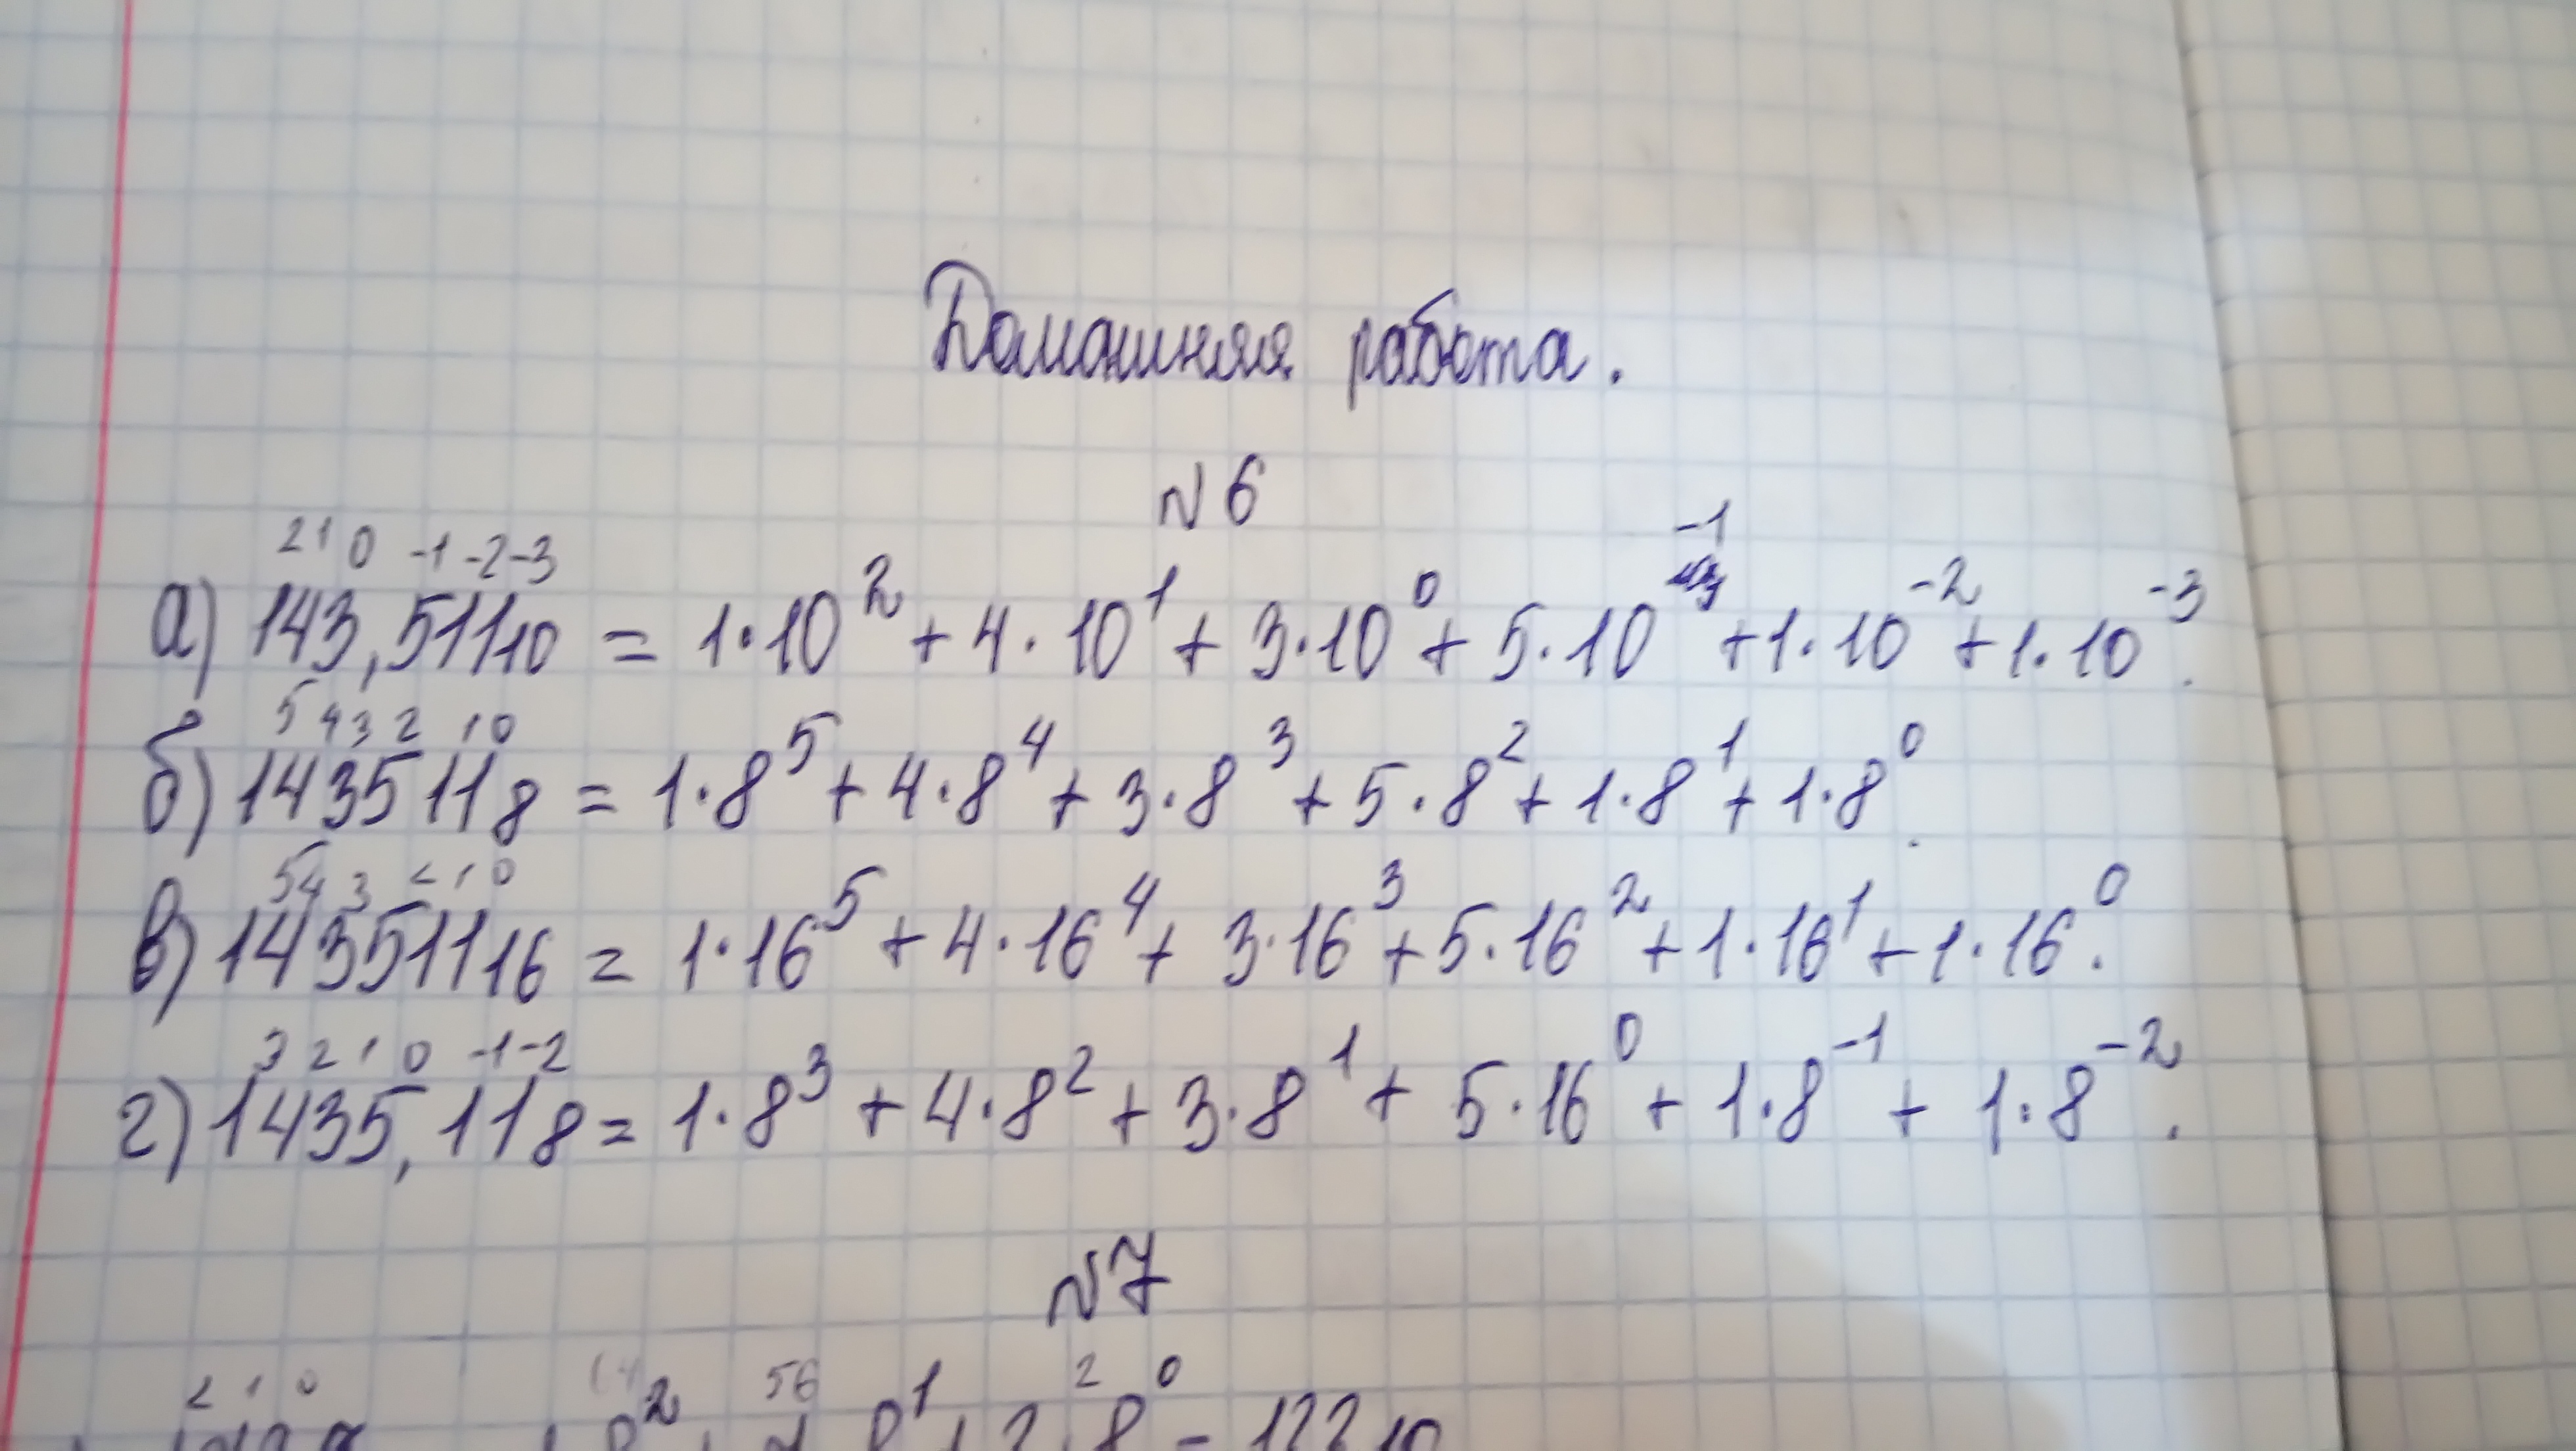 Домашняя работа.
№6
2 1 0 -1 -2 -3
а) 143,511₁₀ = 1·10² + 4·10¹ + 3·10⁰ + 5·10⁻¹ + 1·10⁻² + 1·10⁻³.
5 4 3 2 1 0
б) 143511₈ = 1·8⁵ + 4·8⁴ + 3·8³ + 5·8² + 1·8¹ + 1·8⁰.
5 4 3 2 1 0
в) 143511₁₆ = 1·16⁵ + 4·16⁴ + 3·16³ + 5·16² + 1·16¹ + 1·16⁰.
3 2 1 0 -1 -2
г) 1435,11₈ = 1·8³ + 4·8² + 3·8¹ + 5·16⁰ + 1·8⁻¹ + 1·8⁻².
№7
2 1 0 56 2
8² + 8¹ + 2·8⁰ = 122₁₀